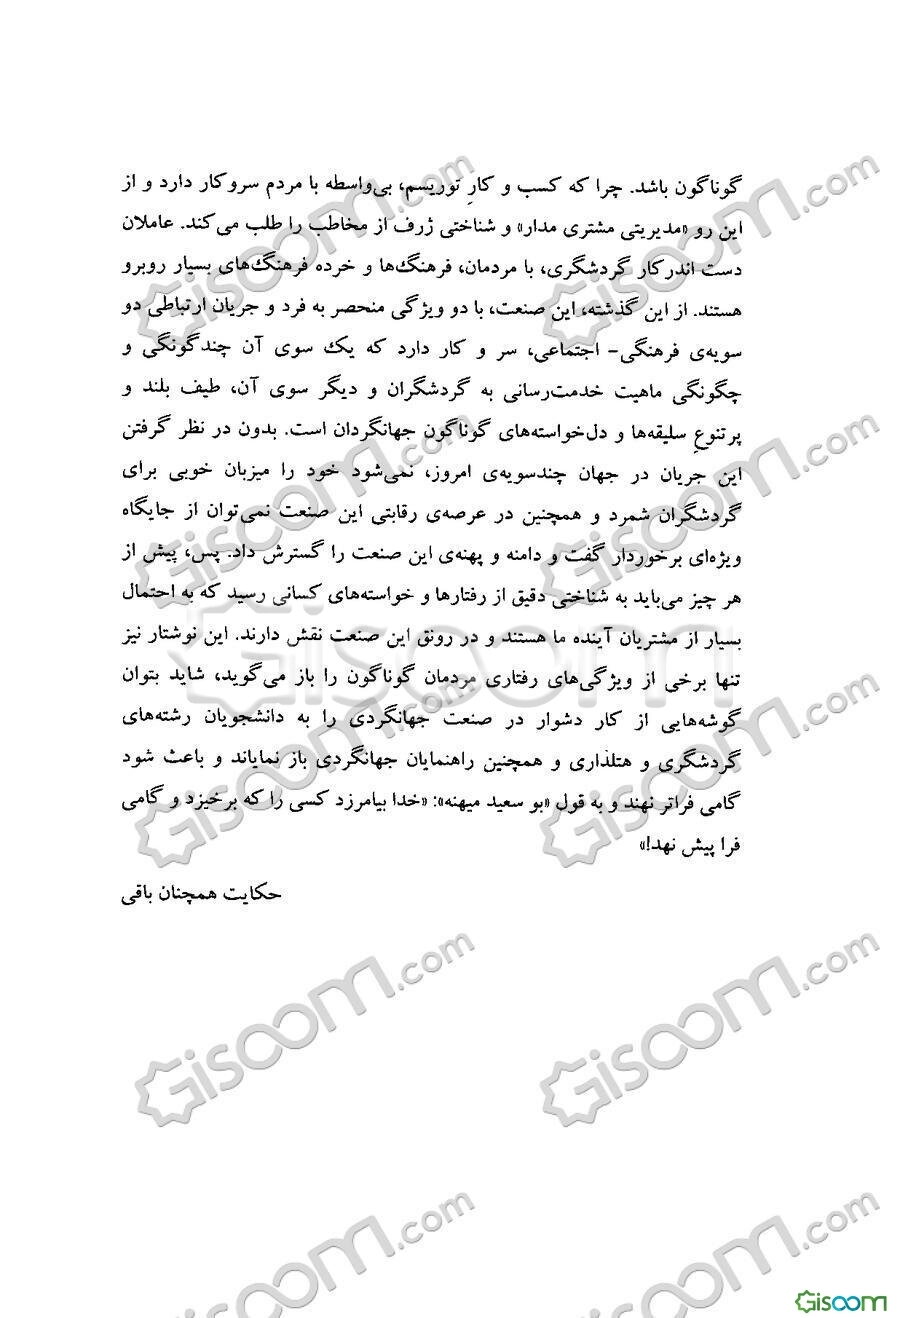 گوناگون باشد. چرا که کسب و کارِ توریسم، بی‌واسطه با مردم سروکار دارد و از
این رو «مدیریتی مشتری مدار» و شناختی ژرف از مخاطب را طلب می‌کند. عاملان
دست اندرکار گردشگری، با مردمان، فرهنگ‌ها و خرده فرهنگ‌های بسیار روبرو
هستند. از این گذشته، این صنعت، با دو ویژگی منحصر به فرد و جریان ارتباطی دو
سویه‌ی فرهنگی- اجتماعی، سر و کار دارد که یک سوی آن چندگونگی و
چگونگی ماهیت خدمت‌رسانی به گردشگران و دیگر سوی آن، طیف بلند و
پرتنوعِ سلیقه‌ها و دل‌خواسته‌های گوناگون جهانگردان است. بدون در نظر گرفتن
این جریان در جهان چندسویه‌ی امروز، نمی‌شود خود را میزبان خوبی برای
گردشگران شمرد و همچنین در عرصه‌ی رقابتی این صنعت نمی‌توان از جایگاه
ویژه‌ای برخوردار گفت و دامنه و پهنه‌ی این صنعت را گسترش داد. پس، پیش از
هر چیز می‌باید به شناختی دقیق از رفتارها و خواسته‌های کسانی رسید که به احتمال
بسیار از مشتریان آینده ما هستند و در رونق این صنعت نقش دارند. این نوشتار نیز
تنها برخی از ویژگی‌های رفتاری مردمان گوناگون را باز می‌گوید، شاید بتوان
گوشه‌هایی از کار دشوار در صنعت جهانگردی را به دانشجویان رشته‌های
گردشگری و هتلداری و همچنین راهنمایان جهانگردی باز نمایاند و باعث شود
گامی فراتر نهند و به قول «بو سعید میهنه»: «خدا بیامرزد کسی را که برخیزد و گامی
فرا پیش نهد!»
حکایت همچنان باقی
Giscom.com
Giscom.com
Giscom.com
Giscom.com
Giscom
Giscom.com
Giscom.com
Giscom.com
Giscom.com
Giscom.com
Giscom.com
Gisoom